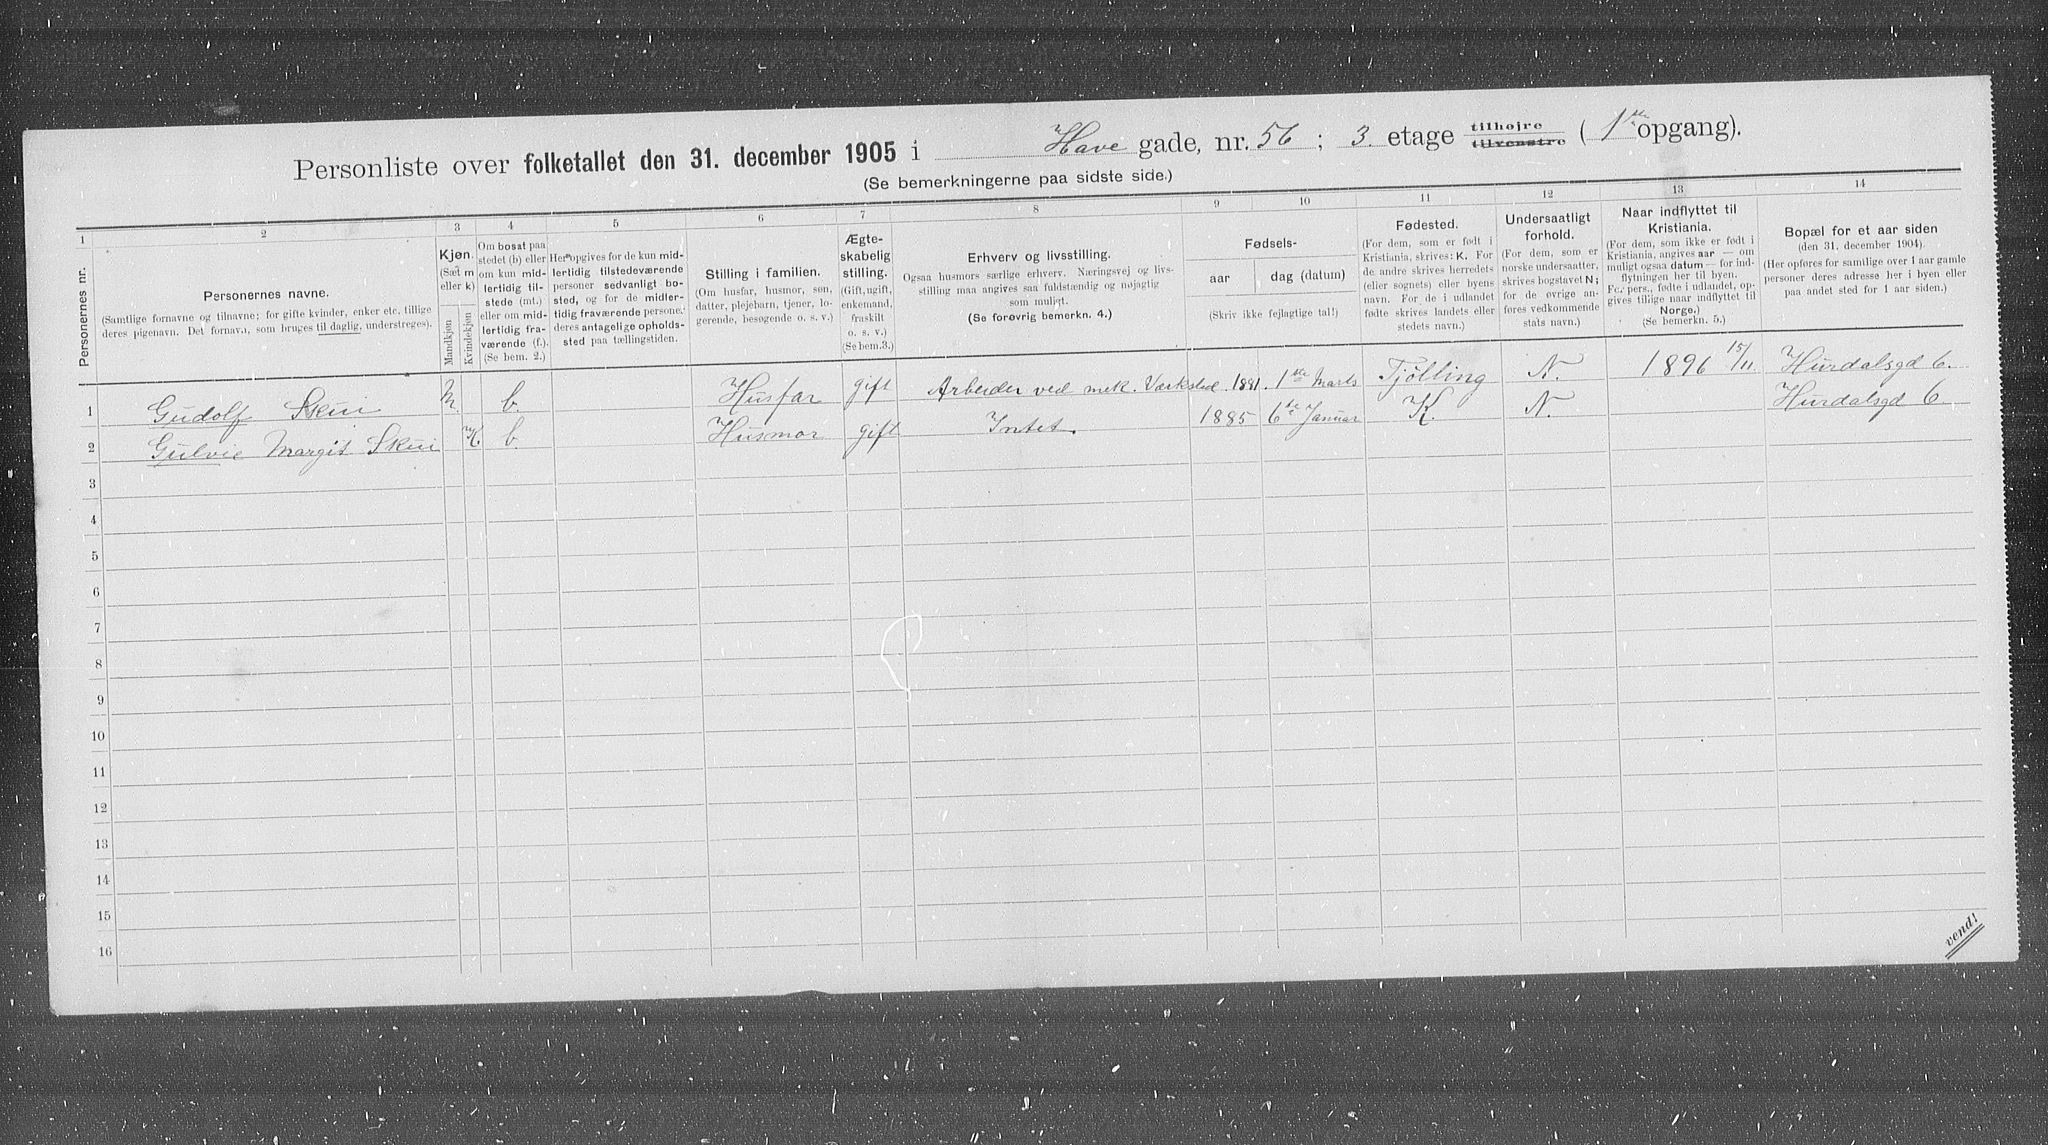 Personliste over folketallet den 31. december 1905 i Have gade, nr. 56 ; 3. etage tilhøjre tilvenstre ( 1ste opgang).
(Se bemerkningerne paa sidste side.)
1 2 3 4 5 6 7 8 9 10 11 12 13 14
Personernes nr.
Personernes navne.
(Samtlige fornavne og tilnavne; for gifte kvinder, enker etc. tillige
deres pigenavn. Det fornavn, som bruges til daglig, understreges).
Kjøn.
(Sæt m
eller k)
Mandkjøn
Kvindekjøn
Om bosat paa
stedet (b) eller
om kun mid-
lertidig til-
stede (mt.)
eller om mid-
lertidig fra-
værende (f.).
(Se bem. 2.)
Her opgives for de kun mid-
lertidig tilstedeværende
personer sedvanligt bo-
sted, og for de midler-
tidig fraværende personer
deres antagelige opholds-
sted paa tællingstiden.
Stilling i familien.
(Om husfar, husmor, søn,
datter, plejebarn, tjener, lo-
gerende, besøgende o. s. v.)
Ægte-
skabelig
stilling.
(Gift, ugift,
enkemand,
fraskilt
o. s. v.)
(Se bem.3.)
Erhverv og livsstilling.
Ogsaa husmors særlige erhverv. Næringsvej og livs-
stilling maa angives saa fuldstændig og nøjagtig
som muligt.
(Se forøvrig bemerkn. 4.)
Fødsels-
aar dag (datum)
(Skriv ikke fejlagtige tal!)
Fødested.
(For dem, som er født i
Kristiania, skrives: K. For
de andre skrives herredets
(eller sognets) eller byens
navn. For de i udlandet
fødte skrives landets eller
stedets navn.)
Undersaatligt
forhold.
(For dem, som er
norske undersaatter,
skrives bogstavet N;
for de øvrige an-
føres vedkommende
stats navn.)
Naar indflyttet til
Kristiania.
(For dem, som ikke er født i
Kristiania, angives aar — om
muligt ogsaa datum — for ind-
flytningen her til byen.
For pers., fødte i udlandet, op-
gives tillige naar indflyttet til
Norge.)
(Se bemerkn. 5.)
Bopæl for et aar siden
(den 31. december 1904).
(Her opføres for samtlige over 1 aar gamle
personer deres adresse her i byen eller
paa andet sted for 1 aar siden.)
1 Gudolf Skui M b. Husfar gift Arbeider ved mek. Værksted. 1881. 1ste Marts Tjølling N. 1896 15/11 Hurdalsgd 6.
2 Gulvie Margit Skui K b. Husmor gift Intet. 1885 6te Januar K. N. Hurdalsgd 6.
3
4
5
6
7
8
9
10
11
12
13
14
15
16
vend!